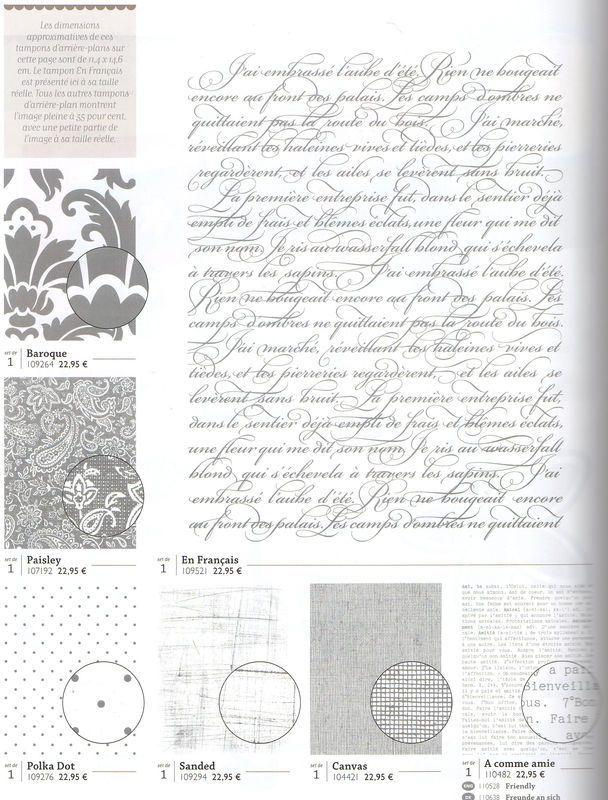 Les dimensions
approximatives de ces
tampons d'arrière-plans sur
cette page sont de 11,4 x 14,6
cm. Le tampon En Français
est présenté ici à sa taille
réelle. Tous les autres tampons
d'arrière-plan montrent
l'image pleine à 55 pour cent,
avec une petite partie de
l'image à sa taille réelle.
J'ai embrassé l'aube d'été. Rien ne bougeait
encore au front des palais. Les camps d'ombres ne
quittaient pas la route du bois. J'ai marché,
réveillant les haleines vives et tièdes, et les pierreries
regardèrent, et les ailes se levèrent sans bruit.
La première entreprise fut, dans le sentier déjà
empli de frais et blêmes éclats, une fleur qui me dit
son nom. Je ris au wasserfall blond qui s'échevela
à travers les sapins. J'ai embrassé l'aube d'été.
Rien ne bougeait encore au front des palais. Les
camps d'ombres ne quittaient pas la route du bois.
J'ai marché, réveillant les haleines vives et
tièdes, et les pierreries regardèrent, et les ailes se
levèrent sans bruit. La première entreprise fut,
dans le sentier déjà empli de frais et blêmes éclats,
une fleur qui me dit son nom. Je ris au wasserfall
blond qui s'échevela à travers les sapins. J'ai
embrassé l'aube d'été. Rien ne bougeait encore
au front des palais. Les camps d'ombres ne quittaient
set de 1 Baroque
109264 22,95 €
set de 1 Paisley
107192 22,95 €
set de 1 En Français
109521 22,95 €
set de 1 Polka Dot
109276 22,95 €
set de 1 Sanded
109294 22,95 €
set de 1 Canvas
104421 22,95 €
y a pai
Bienveilla
ous. 7°Bon
n. Faire
avec
set de 1 A comme amie
110482 22,95 €
ENG 110528 Friendly
DE 110638 Freunde an sich